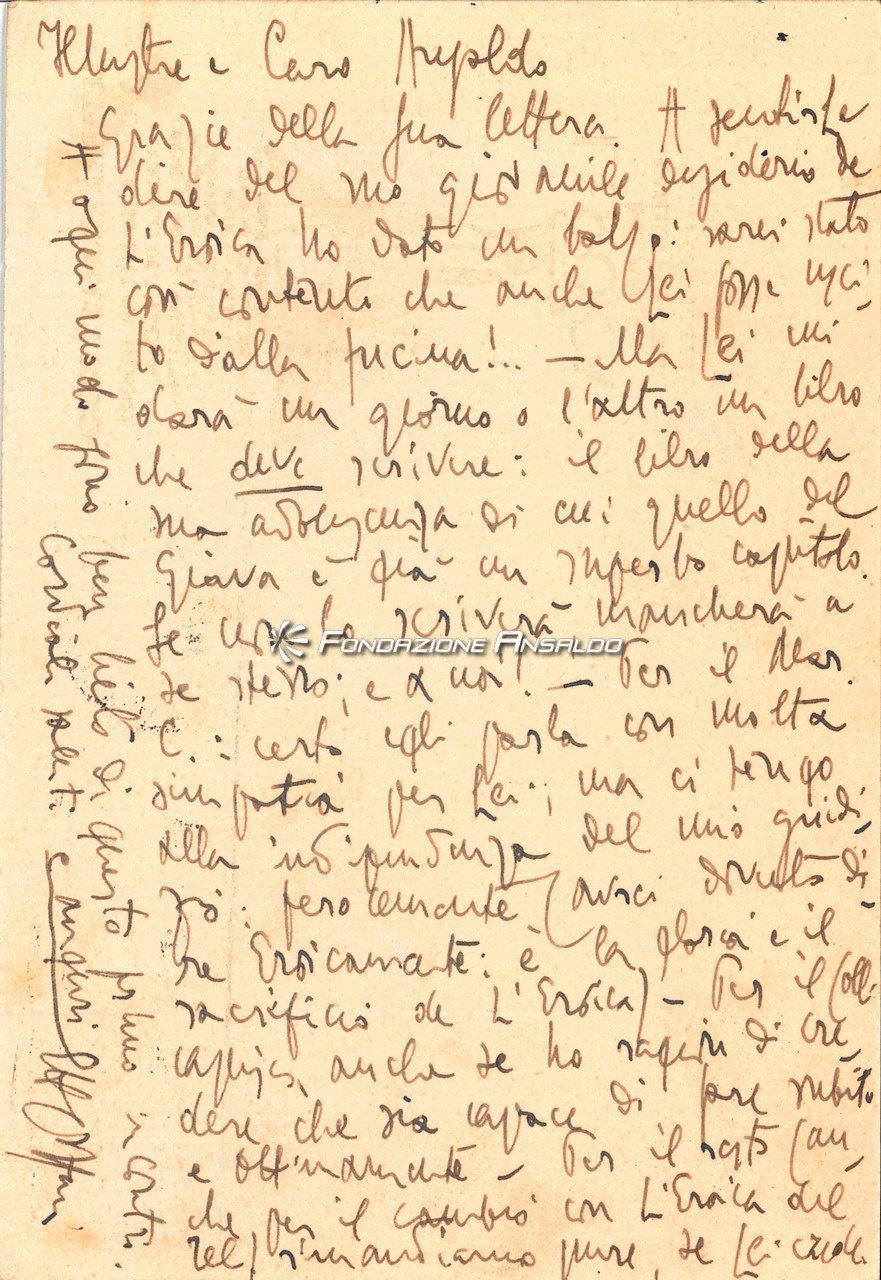 Illustre e Caro Ansaldo
Grazie della Sua lettera. A sentirLe
dire del suo giovanile desiderio de
L'Eroica ho dato un balzo: sarei stato
così contento che anche Lei fosse usci-
to dalla fucina!.. — Ma Lei mi
darà un giorno o l'altro un libro
che deve scrivere: il libro della
sua adolescenza di cui quello del
Giava è già un superbo capitolo.
Se non lo scriverà mancherà a
se stesso; e a noi! — Per il
C.: certo egli parla con molta
simpatia per Lei; ma ci tengo
alla indipendenza del mio giudi-
zio: ferocemente (avrei dovuto di-
re Eroicamente: è la gloria e il
sacrificio de L'Eroica) — Per il
anche se ho ragioni di cre-
dere che sia capace di fare subito
e ottimamente — Per il resto (an-
che per il cambio con L'Eroica del
rimandiamo pure, se Lei crede
A ogni modo sono ben lieto di questo primo incontro.
Cordiali saluti e auguri
FONDAZIONE ANSALDO